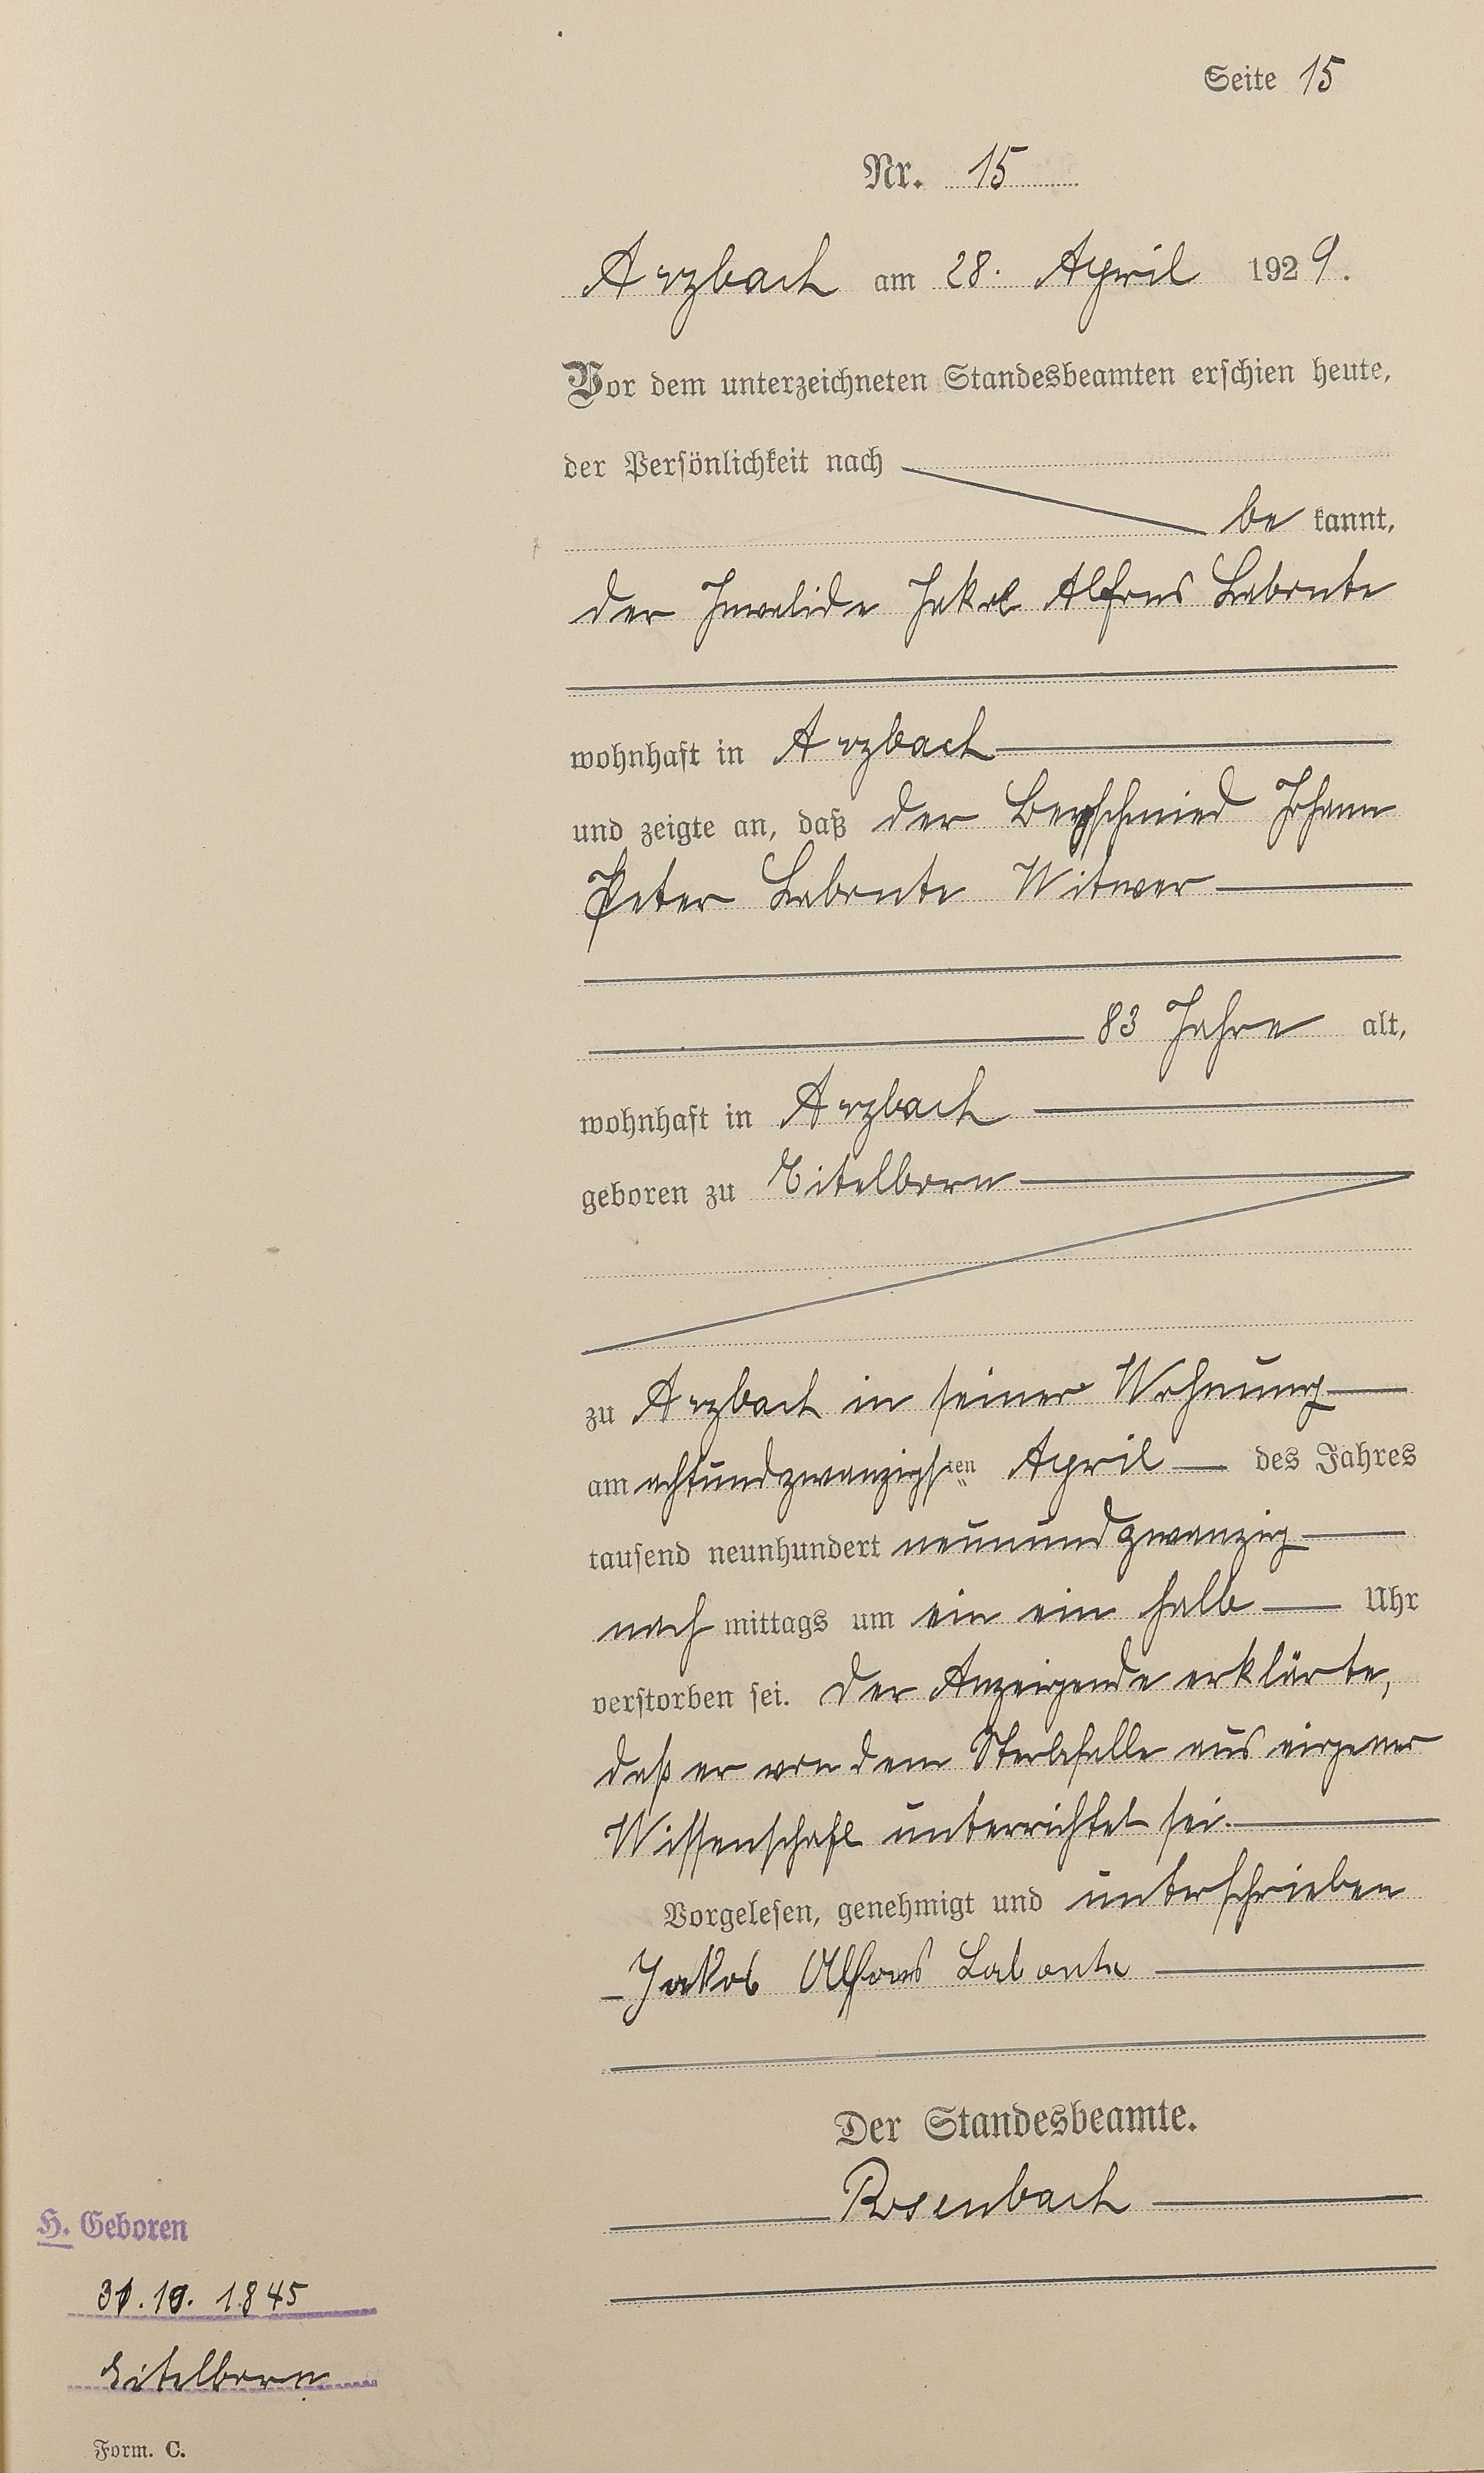 Seite 15
Nr. 15
Arzbach am 28. April 1929.
Vor dem unterzeichneten Standesbeamten erschien heute,
der Persönlichkeit nach
be kannt,
der Invalide Jakob Alfons Labonte
wohnhaft in Arzbach
und zeigte an, daß der Bergschmied Johann
Peter Labonte Witwer
83 Jahre alt,
wohnhaft in Arzbach
geboren zu Eitelborn
zu Arzbach in seiner Wohnung
am achtundzwanzigsten April des Jahres
tausend neunhundert neunundzwanzig
nach mittags um ein ein halb Uhr
verstorben sei. Der Anzeigende erklärte,
daß er von dem Sterbefalle aus eigener
Wissenschaft unterrichtet sei.
Vorgelesen, genehmigt und unterschrieben
Jakob Alfons Labonte
Der Standesbeamte.
Rosenbach
H. Geboren
10. 1845
Eitelborn
Form. C.